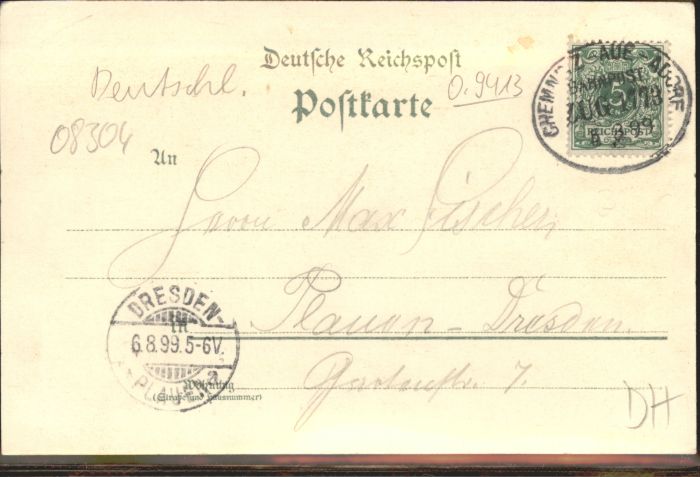 Deutsche Reichspost
Deutschl.
0.9413
Postkarte
08304
An
Herrn Max Fischer,
Plauen-Dresden.
7.
in
Wohnung
(Straße und Hausnummer)
DH
CHEMNITZ AUE ADORF
BAHNPOST
ZUG 1173
8 99
5
REICHSPOST
DRESDEN-
6.8.99.5-6V.
PLAUEN
a